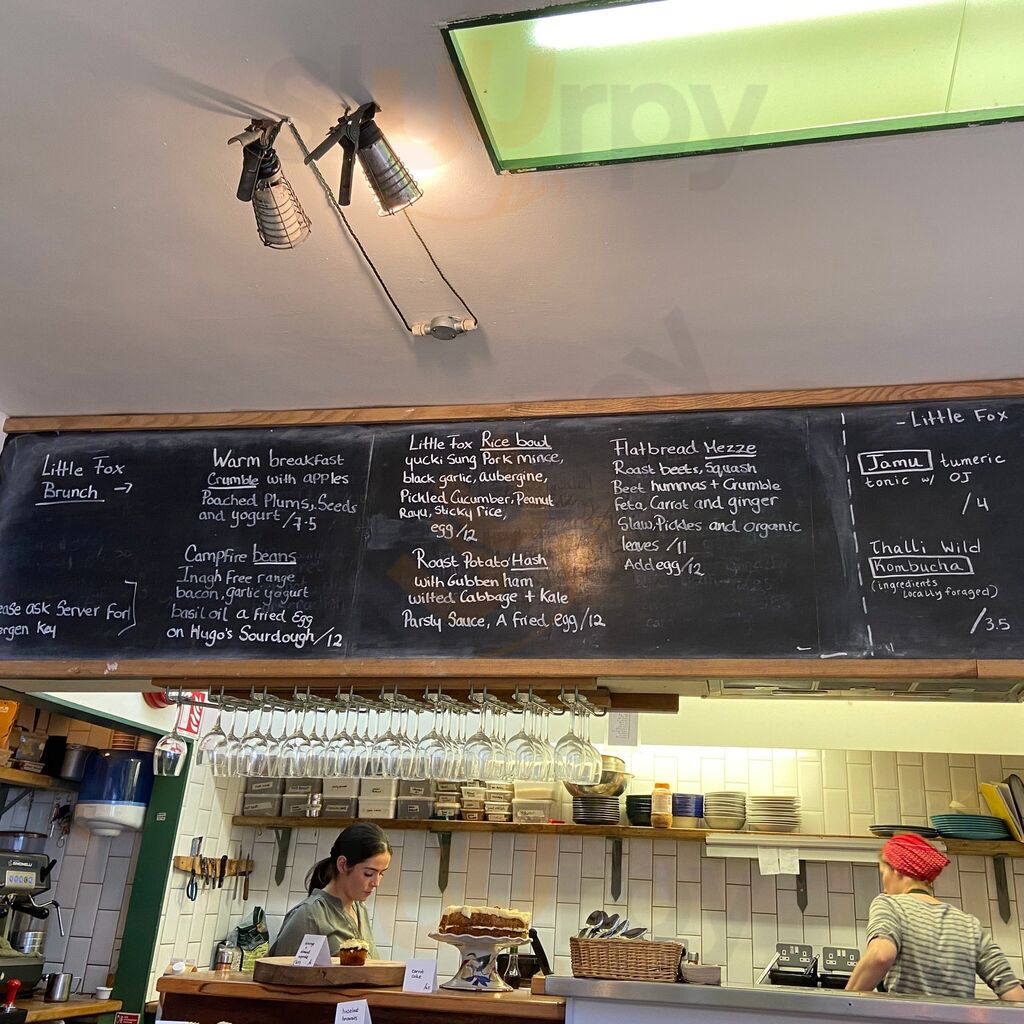 Little Fox
Brunch →
ease ask Server for
ergen key
Warm breakfast
Crumble with apples
Poached Plums, Seeds
and yogurt /7.5
Campfire beans
Inagh Free range
bacon, garlic yogurt
basil oil a fried egg
on Hugo's Sourdough /12
Little Fox Rice bowl
yucki Sung Pork mince,
black garlic, aubergine,
Pickled Cucumber, Peanut
Rayu, Sticky rice,
egg /12
Roast Potato Hash
with Gubben ham
wilted Cabbage + Kale
Parsly Sauce, A fried egg /12
Flatbread Mezze
Roast beets, Squash
Beet hummas + Crumble
Feta, Carrot and ginger
Slaw, Pickles and organic
leaves /11
Add egg /12
- Little Fox
Jamu tumeric
tonic w/ OJ
/4
Thalli Wild
Kombucha
(ingredients
locally foraged)
/3.5
Carrot
cake
hazelnut
brownies
slUurpy